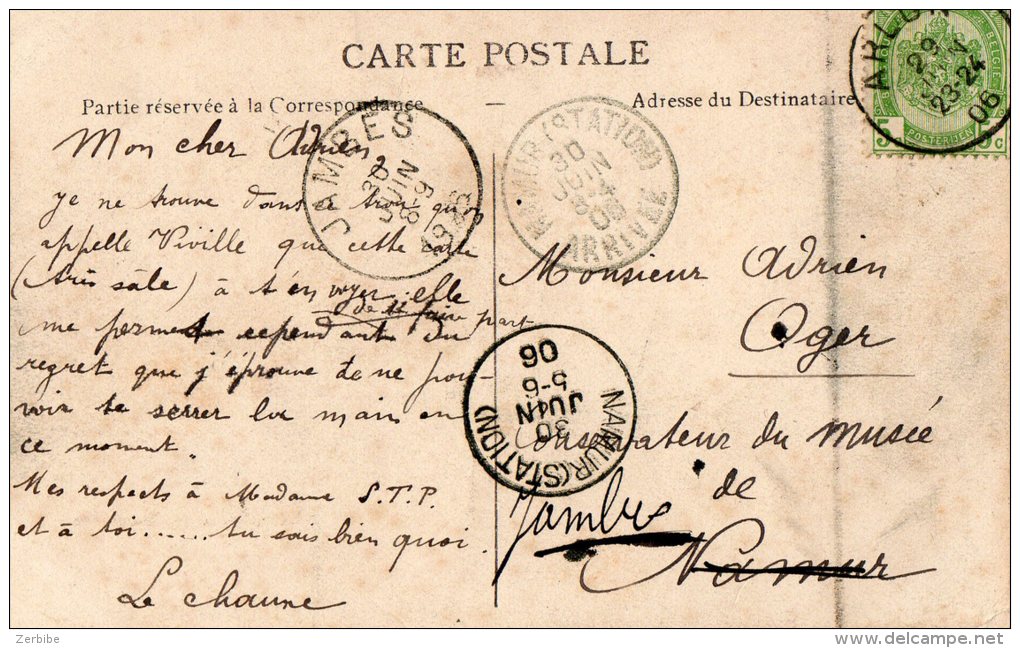 CARTE POSTALE
Partie réservée à la Correspondance
Adresse du Destinataire
Mon cher Adrien,
Je ne trouve dans ce trou qu'on
appelle Viville que cette carte
(très sâle) à t'envoyer; elle
me permet cependant de te faire part du
regret que j'éprouve de ne pou-
voir te serrer la main en
ce moment.
Mes respects à Madame S.T.P.
et à toi...... tu sais bien quoi.
Monsieur Adrien
Oger
Conservateur du musée
de
Jambes
Namur
JAMBES
30
JUIN
8-9
1906
NAMUR (STATION)
30
JUIN
06
ARRIVÉE
NAMUR (STATION)
30
JUIN
5-6
06
ARLON
29
JUIN
23-24
06
BELGIE
POSTERIJEN
5 5c
Zerbibe
www.delcampe.net